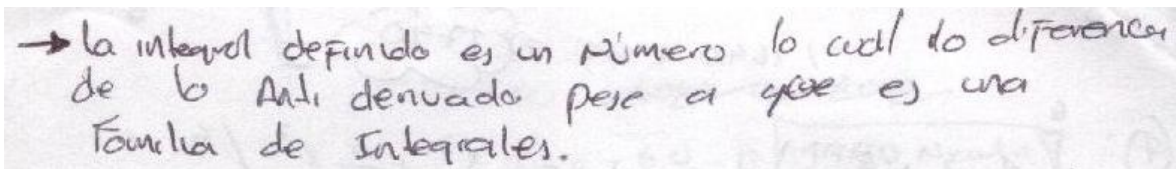 → la integral definida es un Número lo cual lo diferencia
de la Anti derivada pese a que es una
Familia de Integrales.